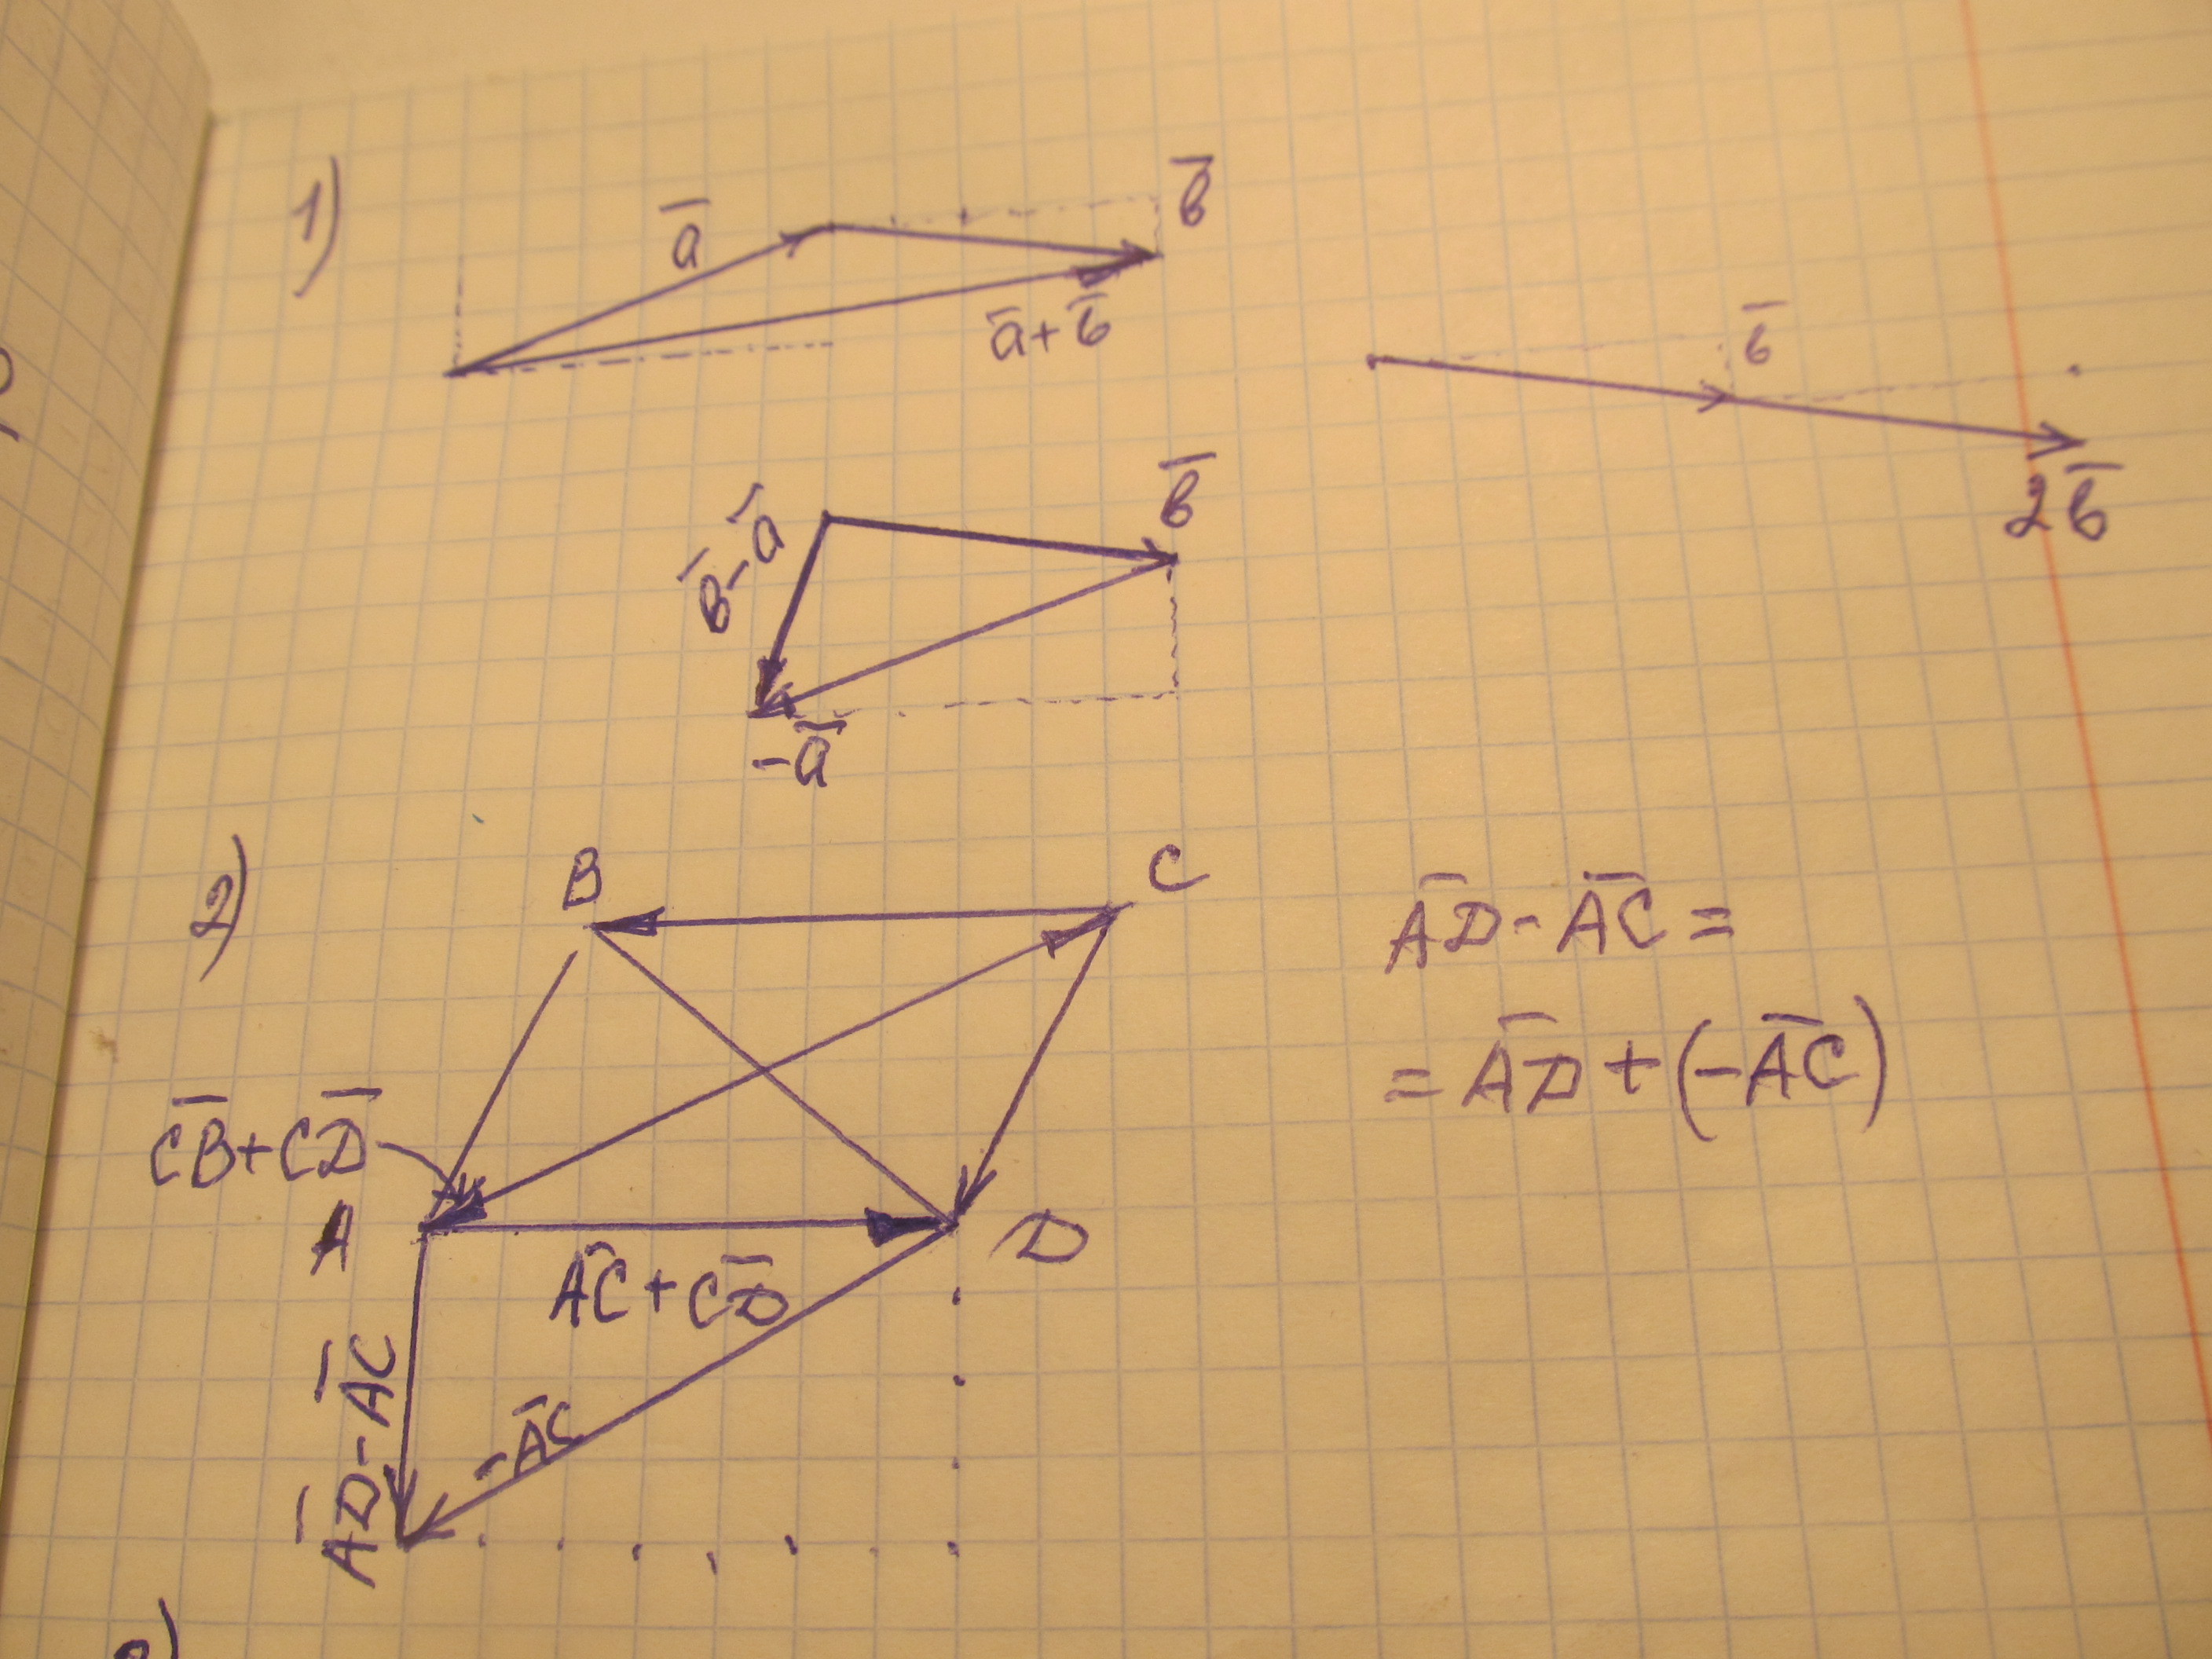 1)
a̅
в̅
a̅+в̅
в̅
2в̅
в̅-a̅
в̅
-a̅
2)
B
C
A̅D̅-A̅C̅=
=A̅D̅+(-A̅C̅)
C̅B̅+C̅D̅
A
D
A̅C̅+C̅D̅
A̅D̅-A̅C̅
-A̅C̅